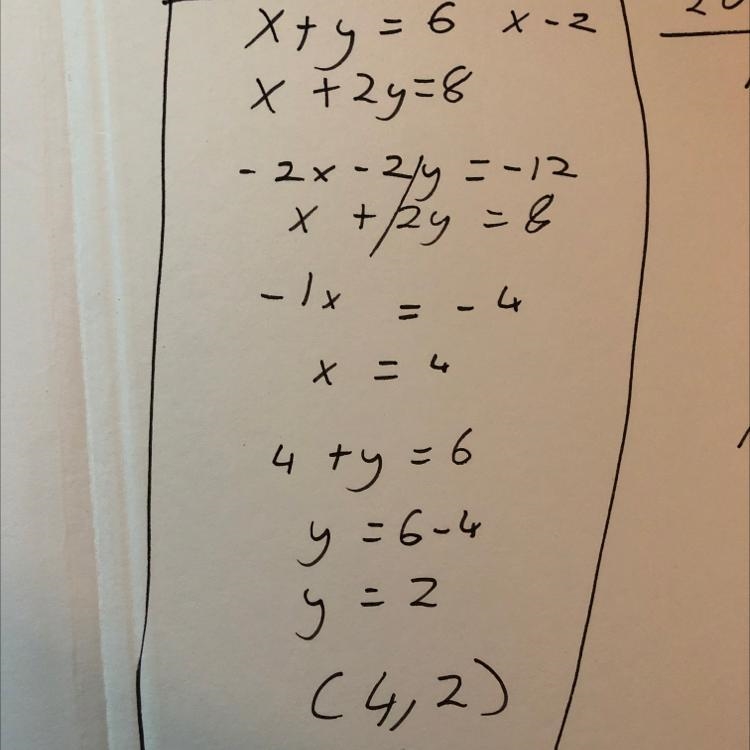 x+y = 6 x - 2
x +2y=8
- 2x - 2y = -12
x + 2y = 8
-1x = - 4
x = 4
4 +y = 6
y = 6-4
y = 2
(4,2)